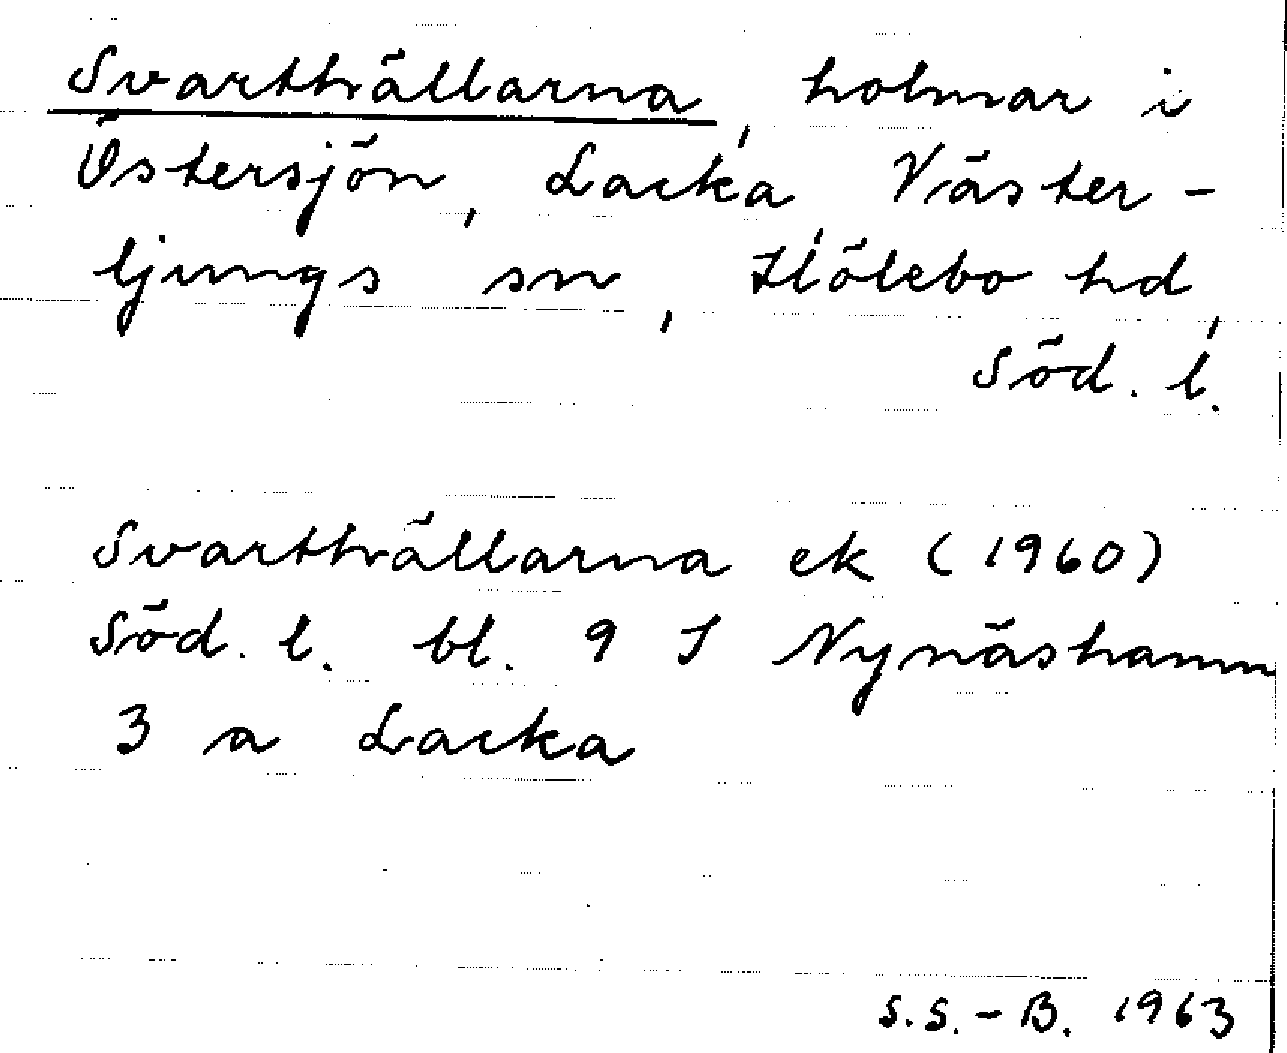 Svarthällarna, holmar i
Östersjön, Lacka, Väster-
ljungs sn, Hölebo hd,
Söd. l.
Svarthällarna ek (1960)
Söd. l. bl. 9 I Nynäshamn
3 a Lacka
S.S.-B. 1963